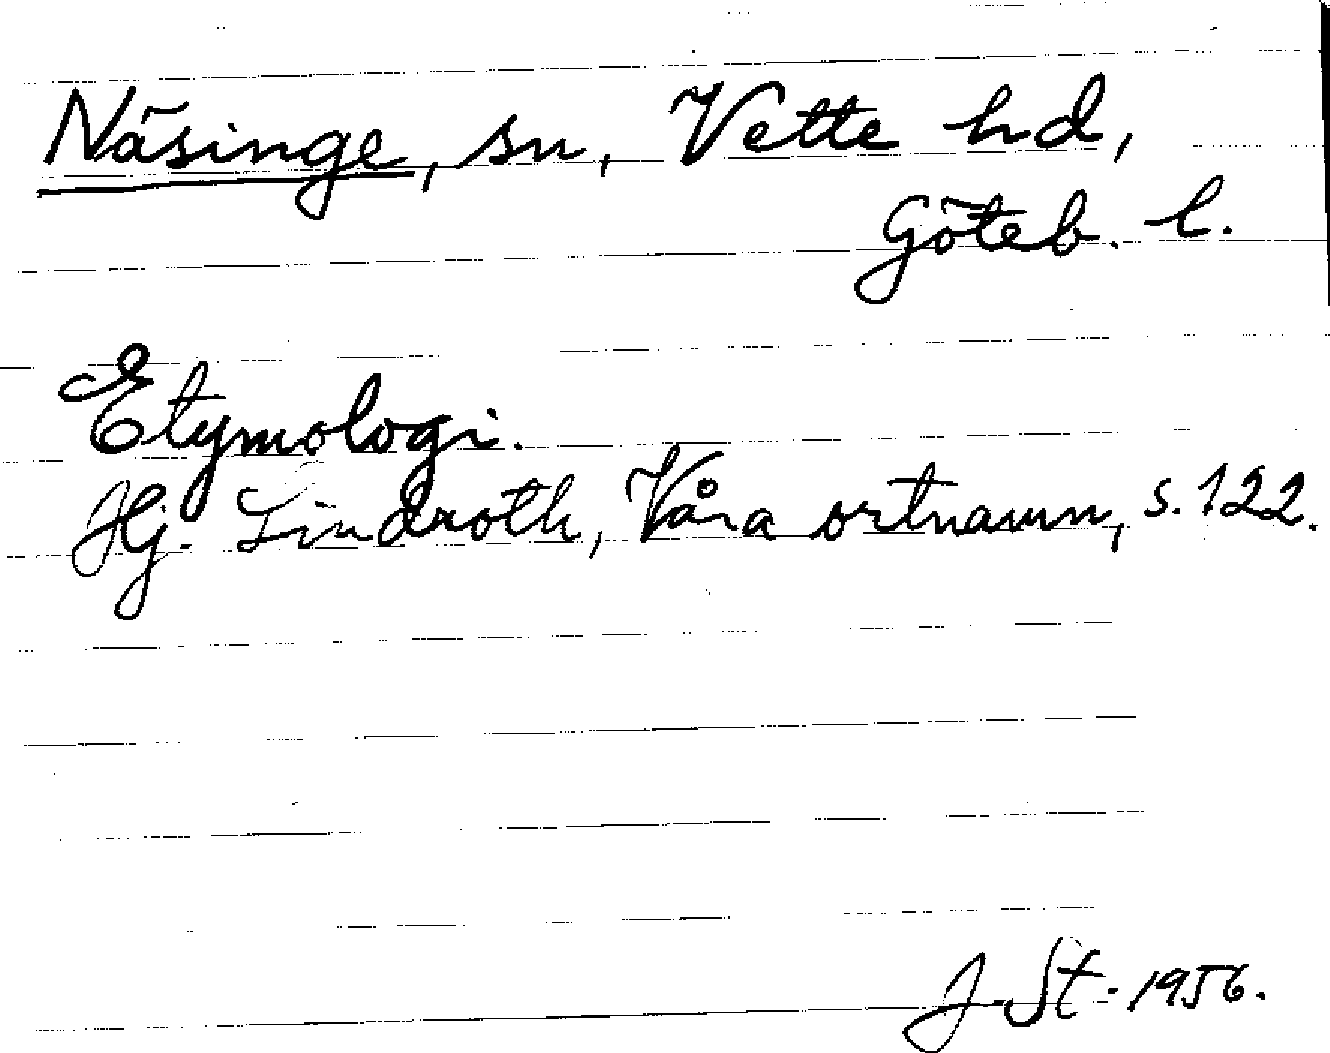 Näsinge, sn, Vette hd,
Göteb. l.
Etymologi.
Hj. Lindroth, Våra ortnamn, s. 122.
J. St. 1956.